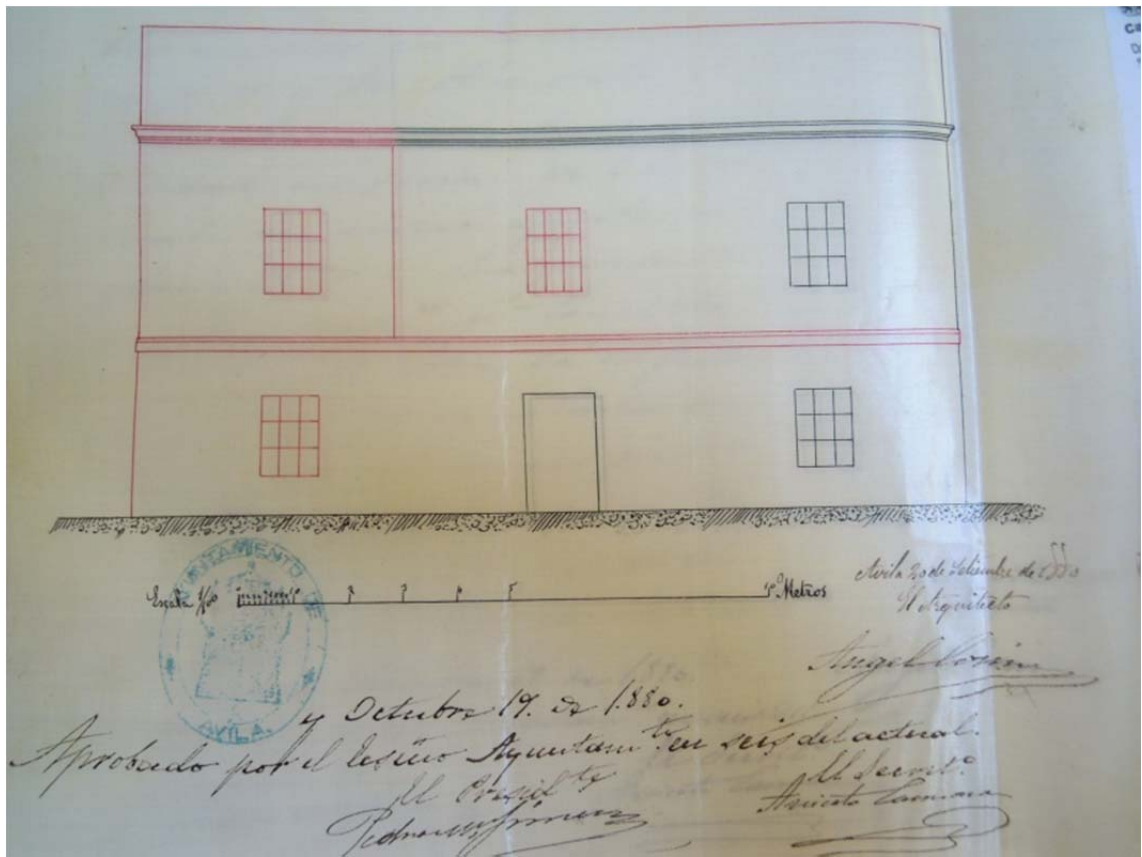 AYUNTAMIENTO DE
AVILA.
Escala
Metros
Avila 20 de Setiembre de 1880
El Arquitecto
Angel
y Octubre 19. de 1.880.
Aprobado por el Ayuntam.to en seis del actual.
El Presid.te
El Secret.o